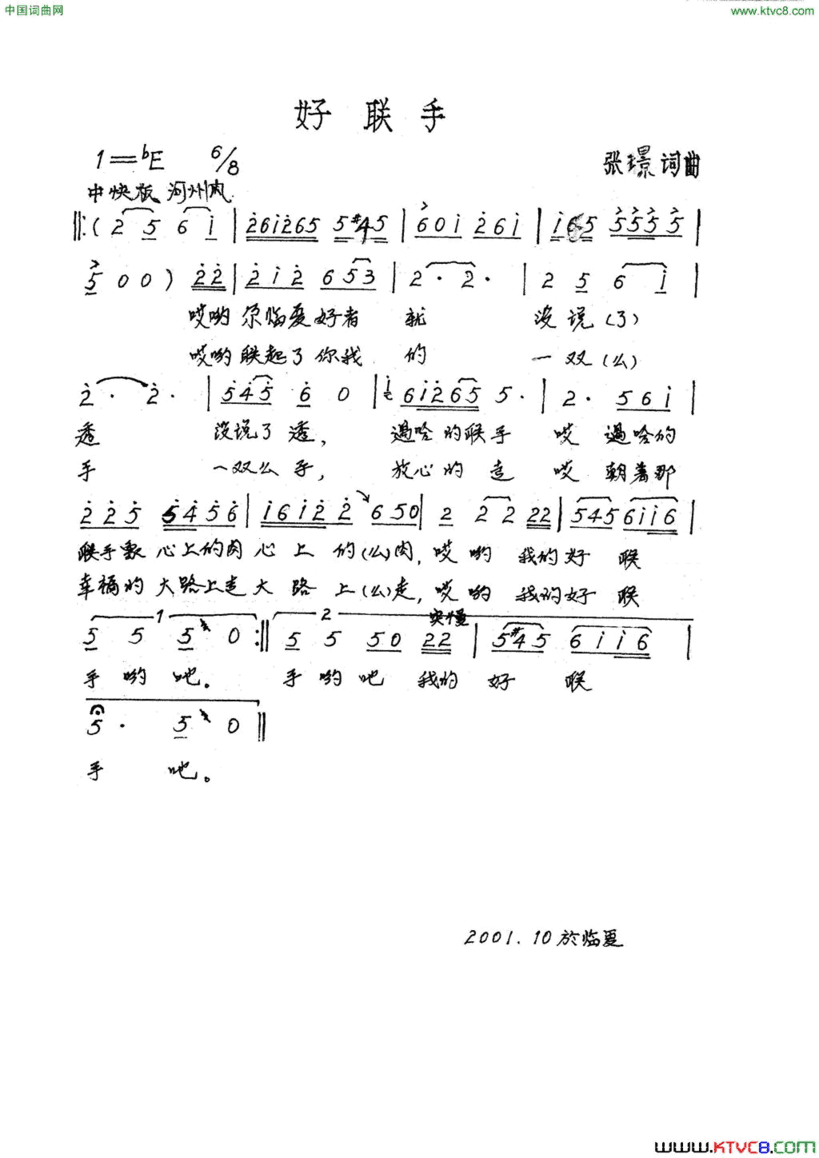 中国词曲网
www.ktvc8.com
好联手
1=ᵇE 6/8
张璟词曲
中快板 河州风
‖:( 2̇ 5 6 i | 2̇6i2̇65 5#45 | 60i 2̇6i | i65 5555 |
5 0 0 ) 2̇2̇ | 2̇ i 2̇ 6 53 | 2 · 2 · | 2 5 6 i |
哎哟 尕临夏好者 就 没说(了)
哎哟联起了你我 的 一双(么)
2̇ · 2̇ · | 5̇4̇5̇ 6̇ 0 | 6i2̇65 5· | 2 · 56i |
透 没说了透, 遇哈的联手 哎 遇哈的
手 一双么手, 放心的走 哎 朝着那
2̇ 2̇ 5̇ 5̇4̇5̇6̇ | i6i2̇ 2̇ 650 | 2 22 22 | 545 6ii6 |
联手 心上的肉心上的(么)肉, 哎哟 我的好联
幸福的大路上走大路上(么)走, 哎哟 我的好联
1
2
突慢
5 5 5 0 :‖ 5 5 50 22 | 5#45 6ii6 |
手哟吧。 手哟吧 我的好联
5 · 5 0 ‖
手 吧。
2001.10於临夏
www.KTVC8.com